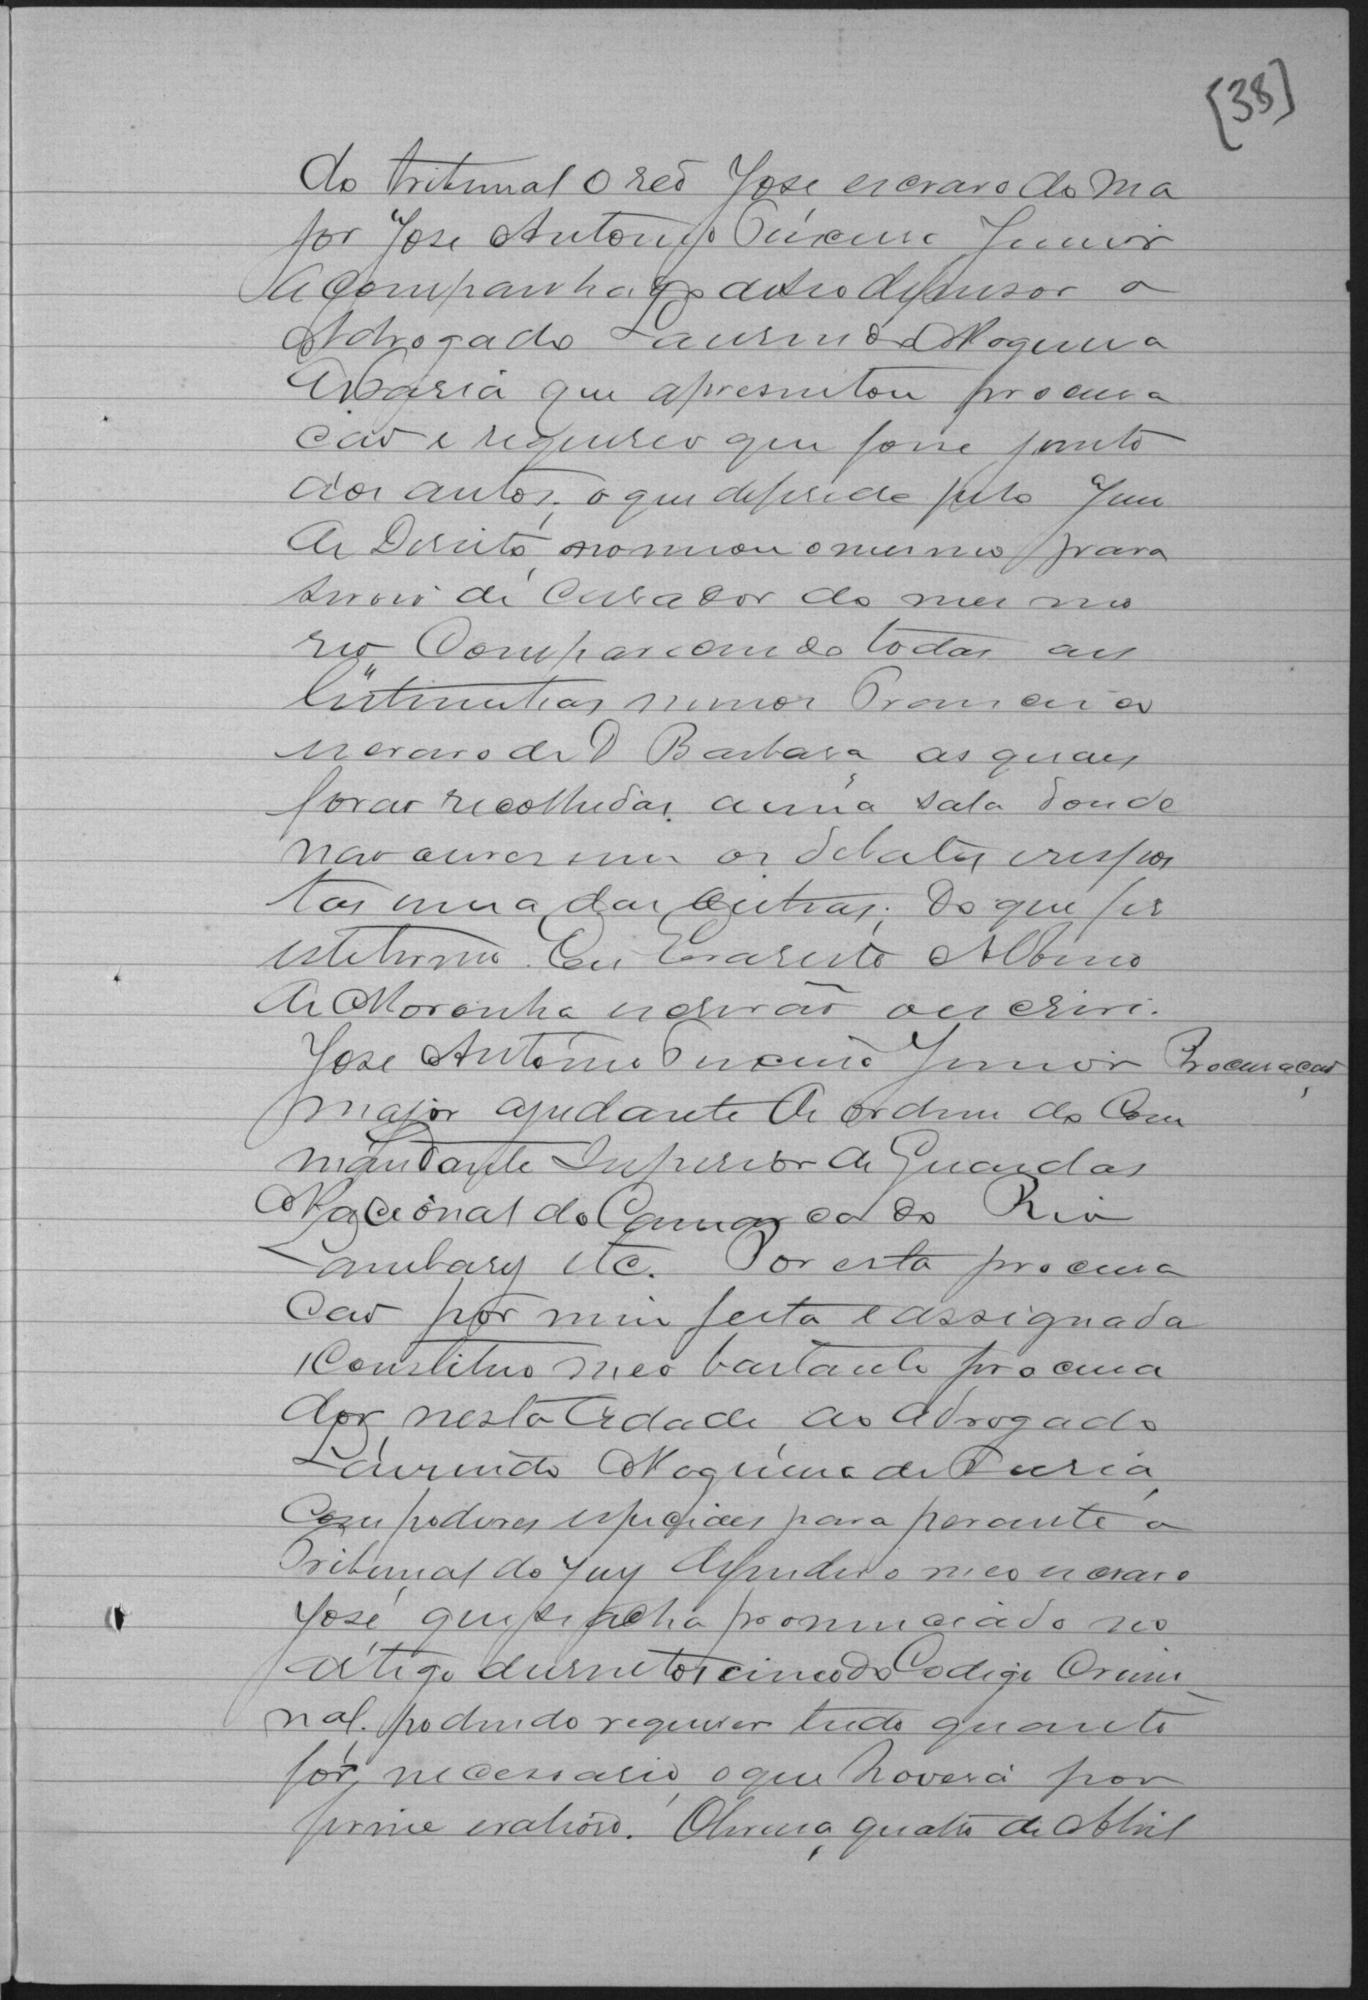 [38]
do tribunal o reo Jose escravo do Ma
jor Jose Antonio Teixeira Junior
acompanhado de seo defensor o
Advogado Laurindo Nogueira
de Faria que apresentou procura
cao e requereo que fosse junto
aos autos, o que deferido pelo Juis
de Dereito, nomeou o mesmo para
servir de Curador do mesmo
reo Comparecendo todas as
testimunhas menos Francisco
escravo de D Barbara, as quaes
forao recolhidas a uma sala donde
nao ouvissem os debates e respos
tas uma das outras; do que fis
este termo. Eu Evaristo Albino
de Noronha escrivão o escrivi.
Jose Antonio Teixeira Junior Procuração
major ajudante de ordem do Com
mandante Superior de Guardas
Nacional da Comarca do Rio
Lambary etc. Por esta procura
cao por mim feita e assignada
Constituo meo bastante procura
dor, nesta Cidade ao advogado
Laurindo Nogueira de Faria,
Com poderes especiaes para perante o
Tribunal do Jury defender o meo escravo
José que se acha pronunciado no
artigo dusentos e cinco do Codigo Crimi
nal. podendo requerer tudo quanto
for, necessario, o que haverá por
firme e valioso. Oliveira, quatro de Abril